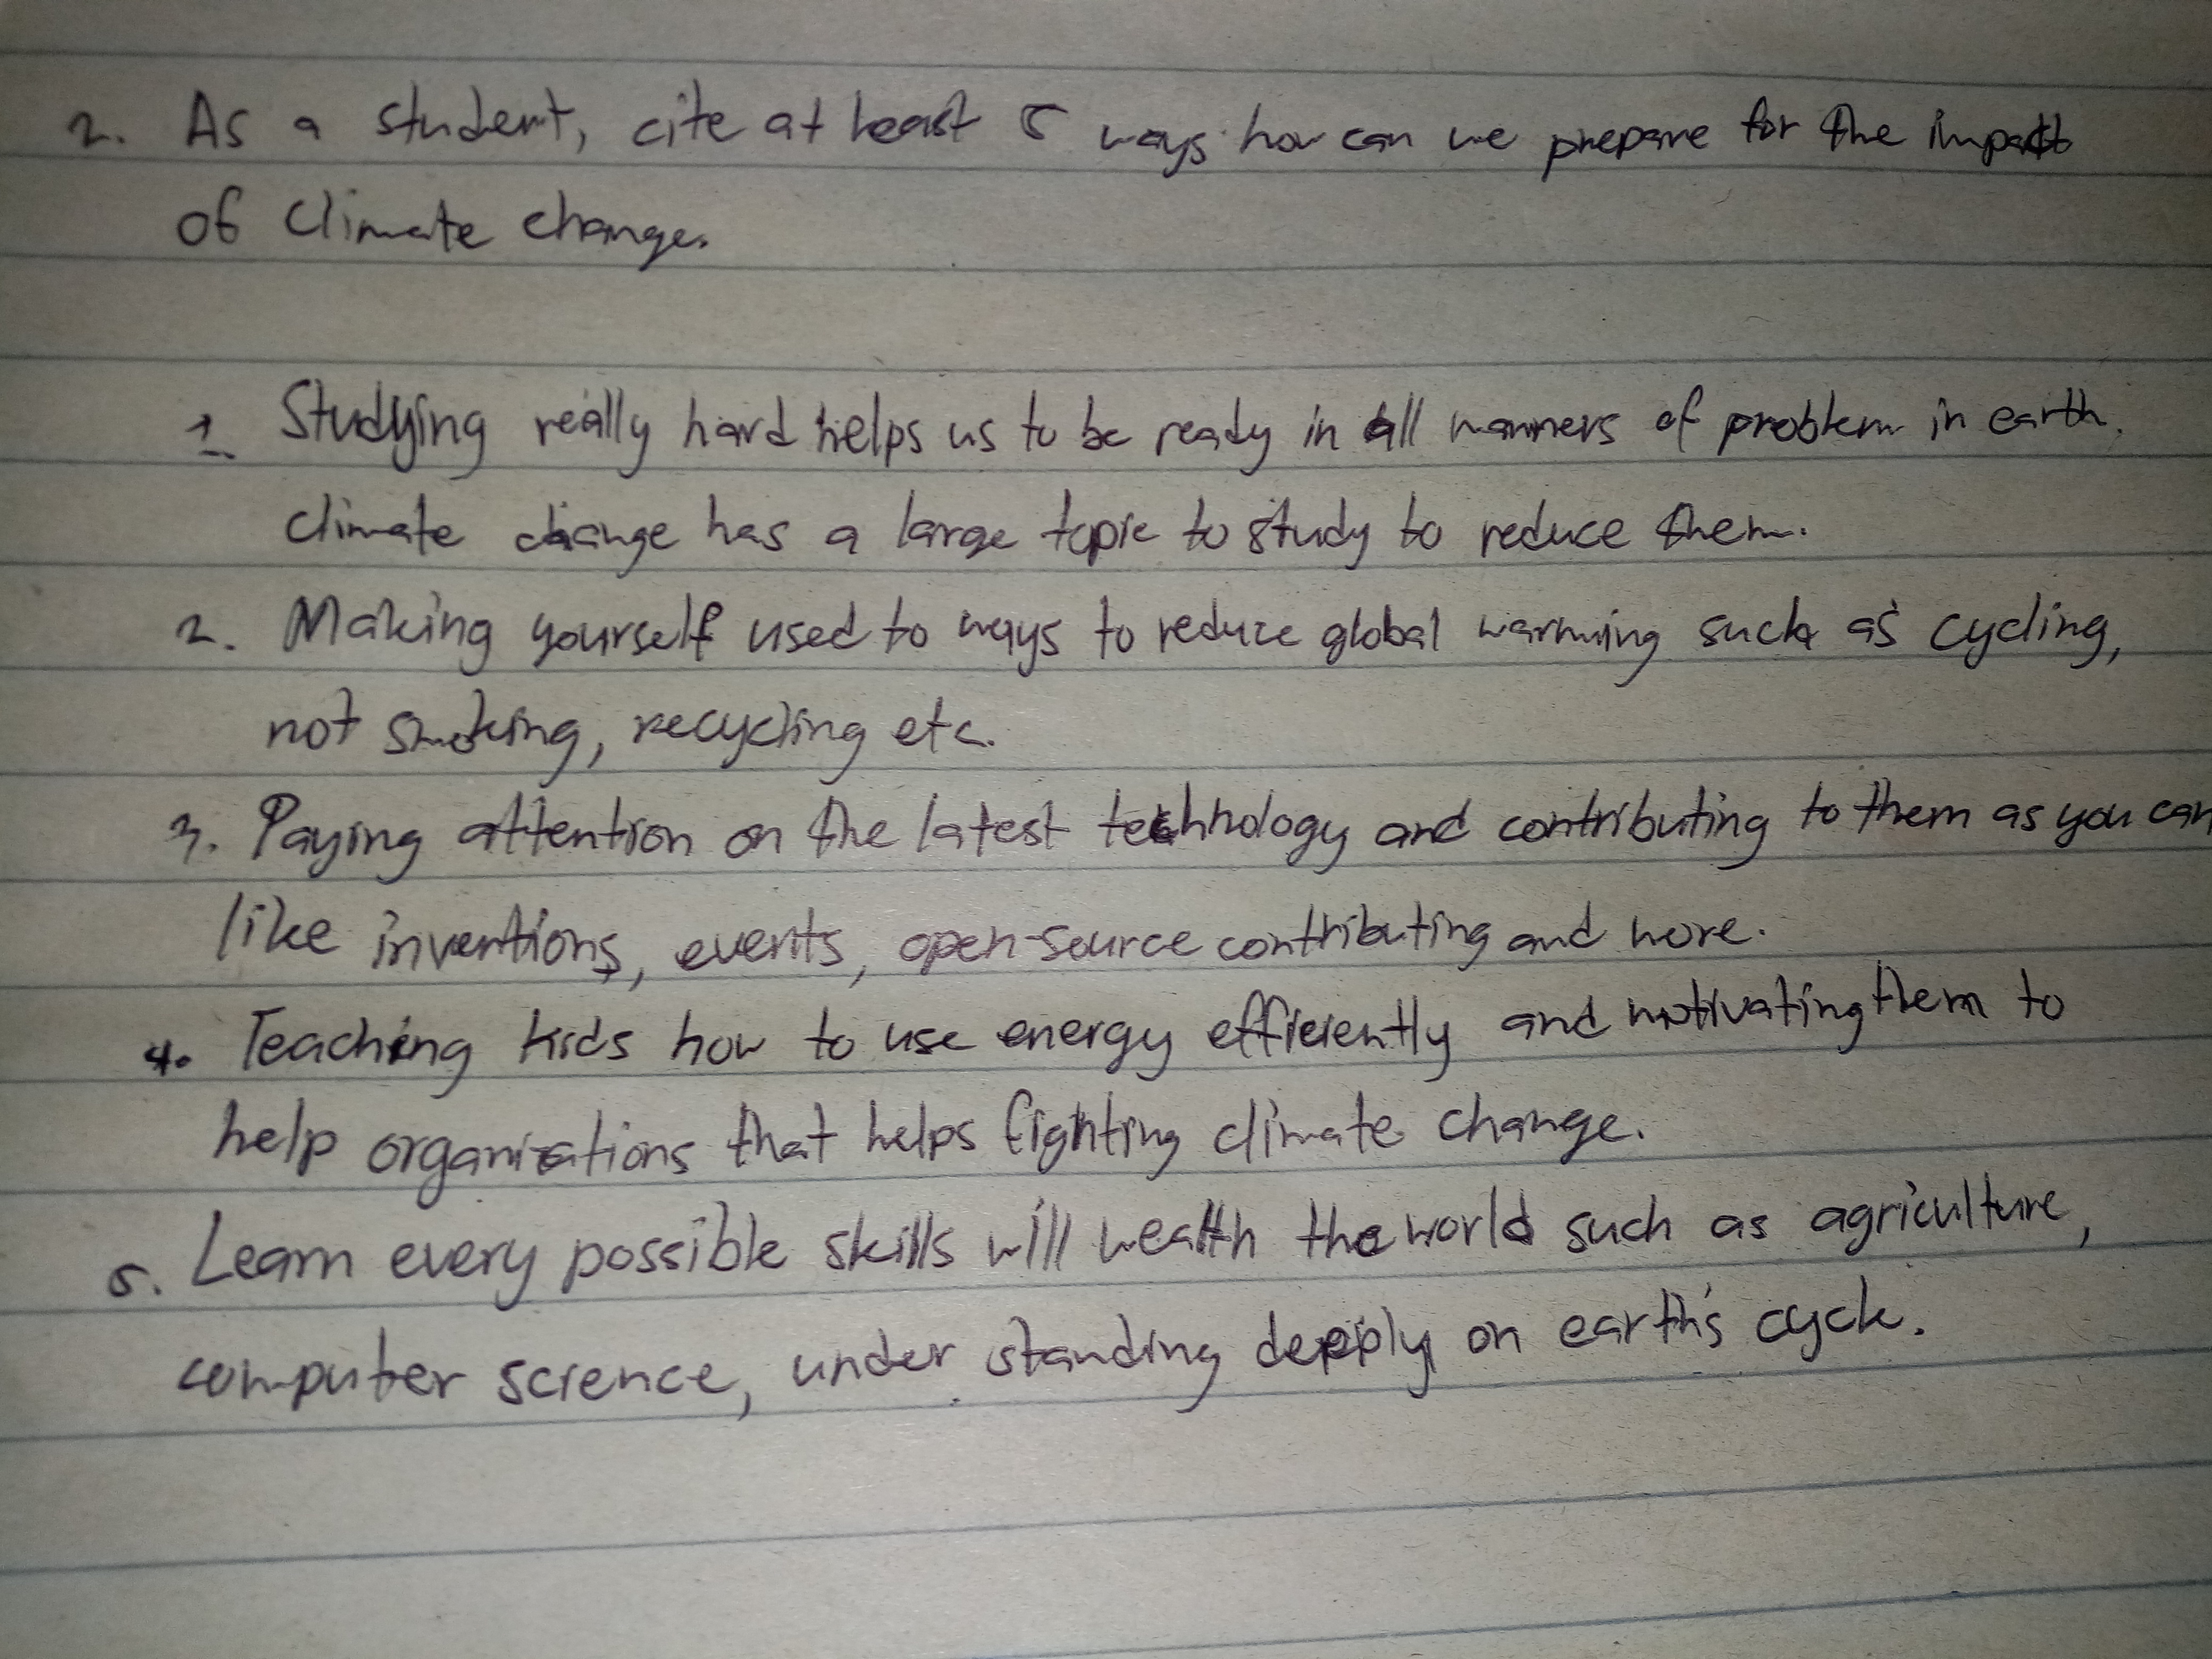 2. As a student, cite at least 5 ways how can we prepare for the impact
of climate change.
1. Studying really hard helps us to be ready in all manners of problem in earth.
climate change has a large topic to study to reduce them.
2. Making yourself used to ways to reduce global warming such as cycling,
not smoking, recycling etc.
3. Paying attention on the latest technology and contributing to them as you can
like inventions, events, open-source contributing and more.
4. Teaching kids how to use energy efficiently and motivating them to
help organizations that helps fighting climate change.
5. Learn every possible skills will wealth the world such as agriculture,
computer science, under standing deeply on earth's cycle.